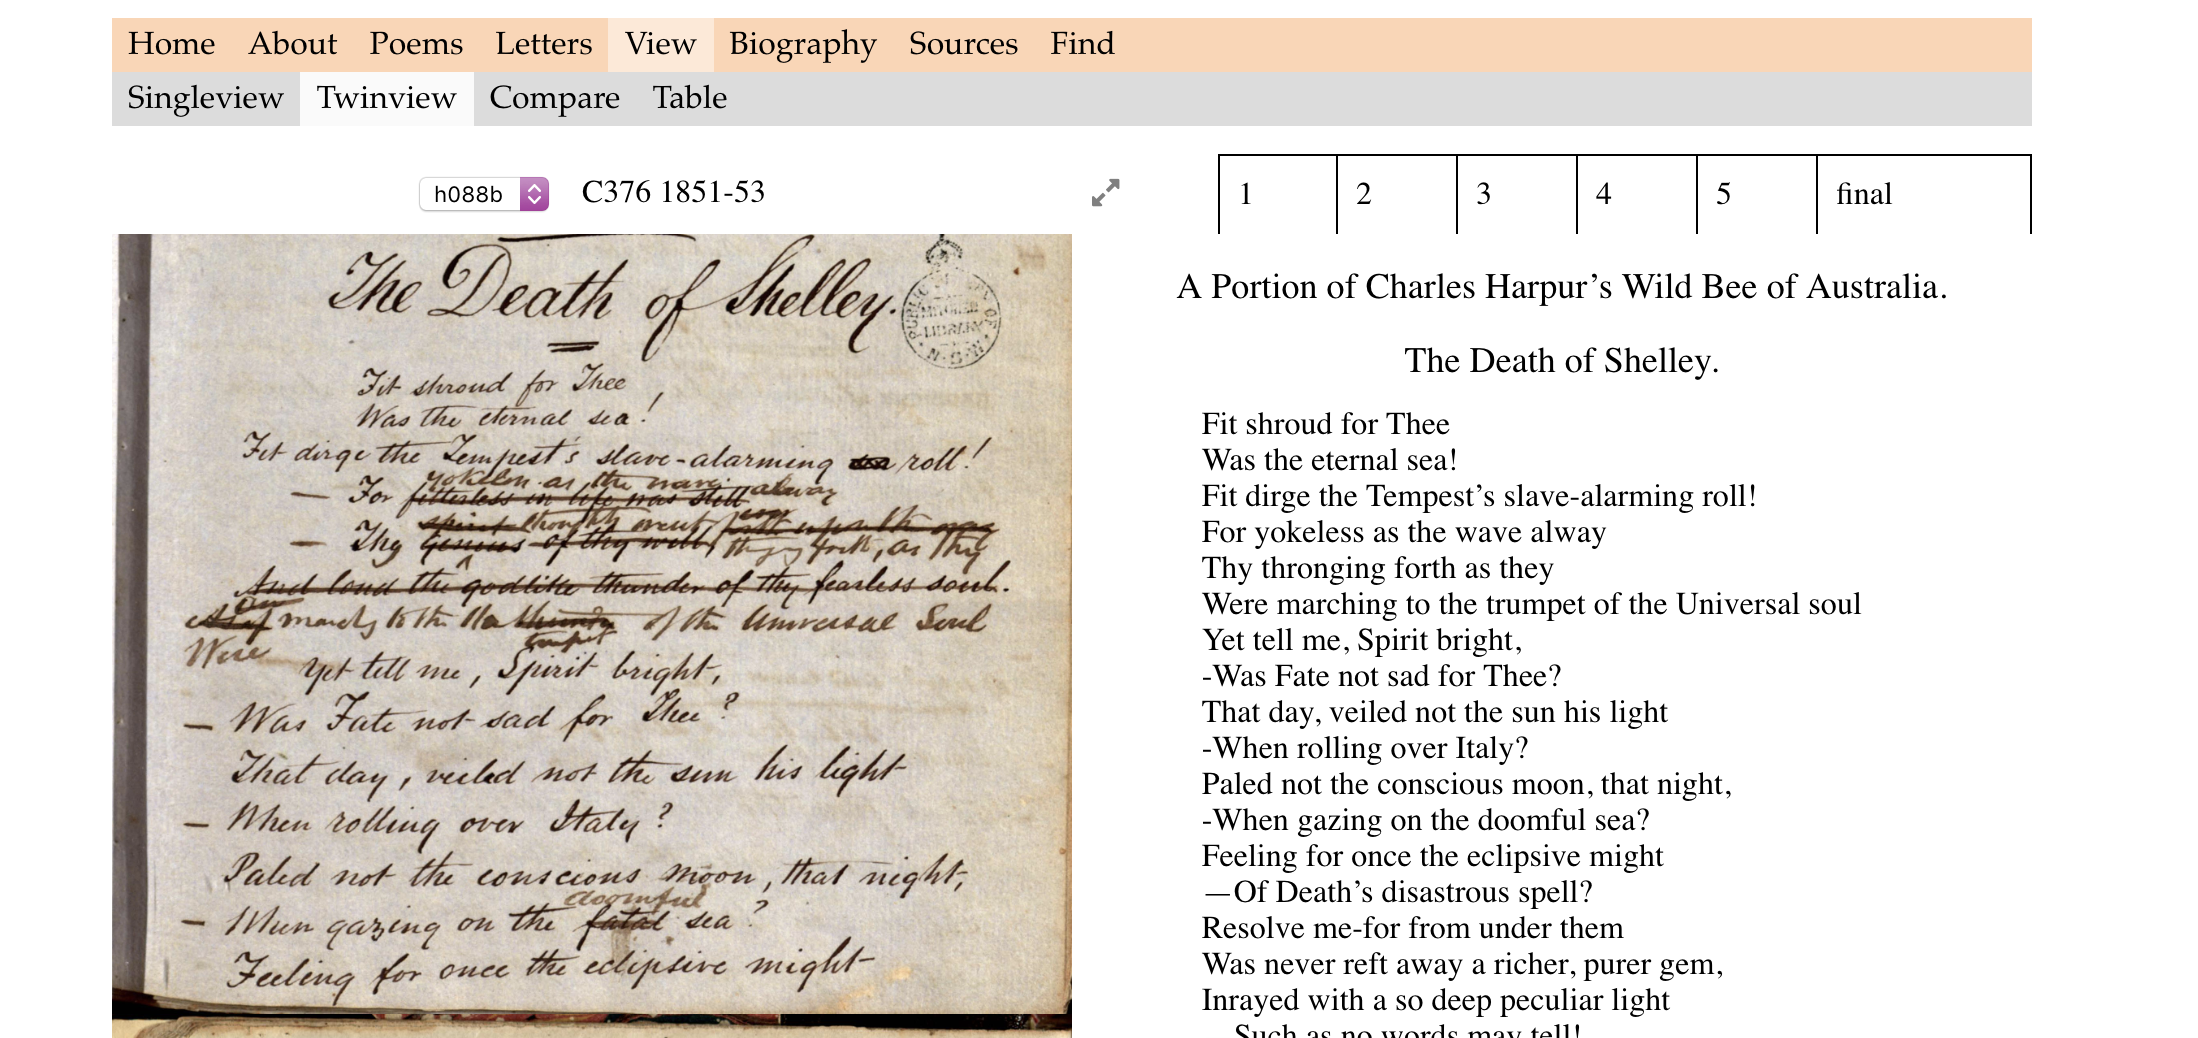 Home About Poems Letters View Biography Sources Find
Singleview Twinview Compare Table
h088b C376 1851-53
1 2 3 4 5 final
The Death of Shelley.
PUBLIC LIBRARY OF N.S.W. MITCHELL LIBRARY
Fit shroud for Thee
Was the eternal sea!
Fit dirge the Tempest's slave-alarming sea roll!
yokeless as the wave alway
— For fitterless in life was still
spirit thought went forth upon the
— Thy Genius of thy will, forth, as they
And loud the godlike thunder of thy fearless soul.
march to the of the Universal Soul
trumpet
Were
Yet tell me, Spirit bright,
— Was Fate not sad for Thee?
That day, veiled not the sun his light
— When rolling over Italy?
Paled not the conscious moon, that night,
doomful
— When gazing on the fatal sea?
Feeling for once the eclipsive might
A Portion of Charles Harpur’s Wild Bee of Australia.
The Death of Shelley.
Fit shroud for Thee
Was the eternal sea!
Fit dirge the Tempest’s slave-alarming roll!
For yokeless as the wave alway
Thy thronging forth as they
Were marching to the trumpet of the Universal soul
Yet tell me, Spirit bright,
-Was Fate not sad for Thee?
That day, veiled not the sun his light
-When rolling over Italy?
Paled not the conscious moon, that night,
-When gazing on the doomful sea?
Feeling for once the eclipsive might
—Of Death’s disastrous spell?
Resolve me-for from under them
Was never reft away a richer, purer gem,
Inrayed with a so deep peculiar light
Such as no words may tell!